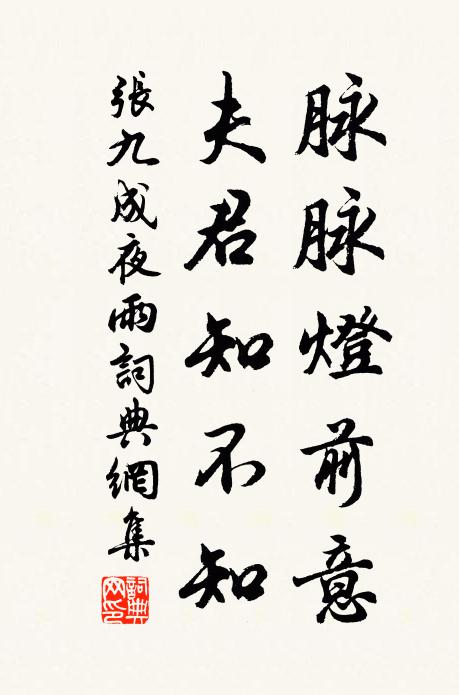 脉脉燈前意
夫君知不知
張九成夜雨詞典網集
詞典
网印